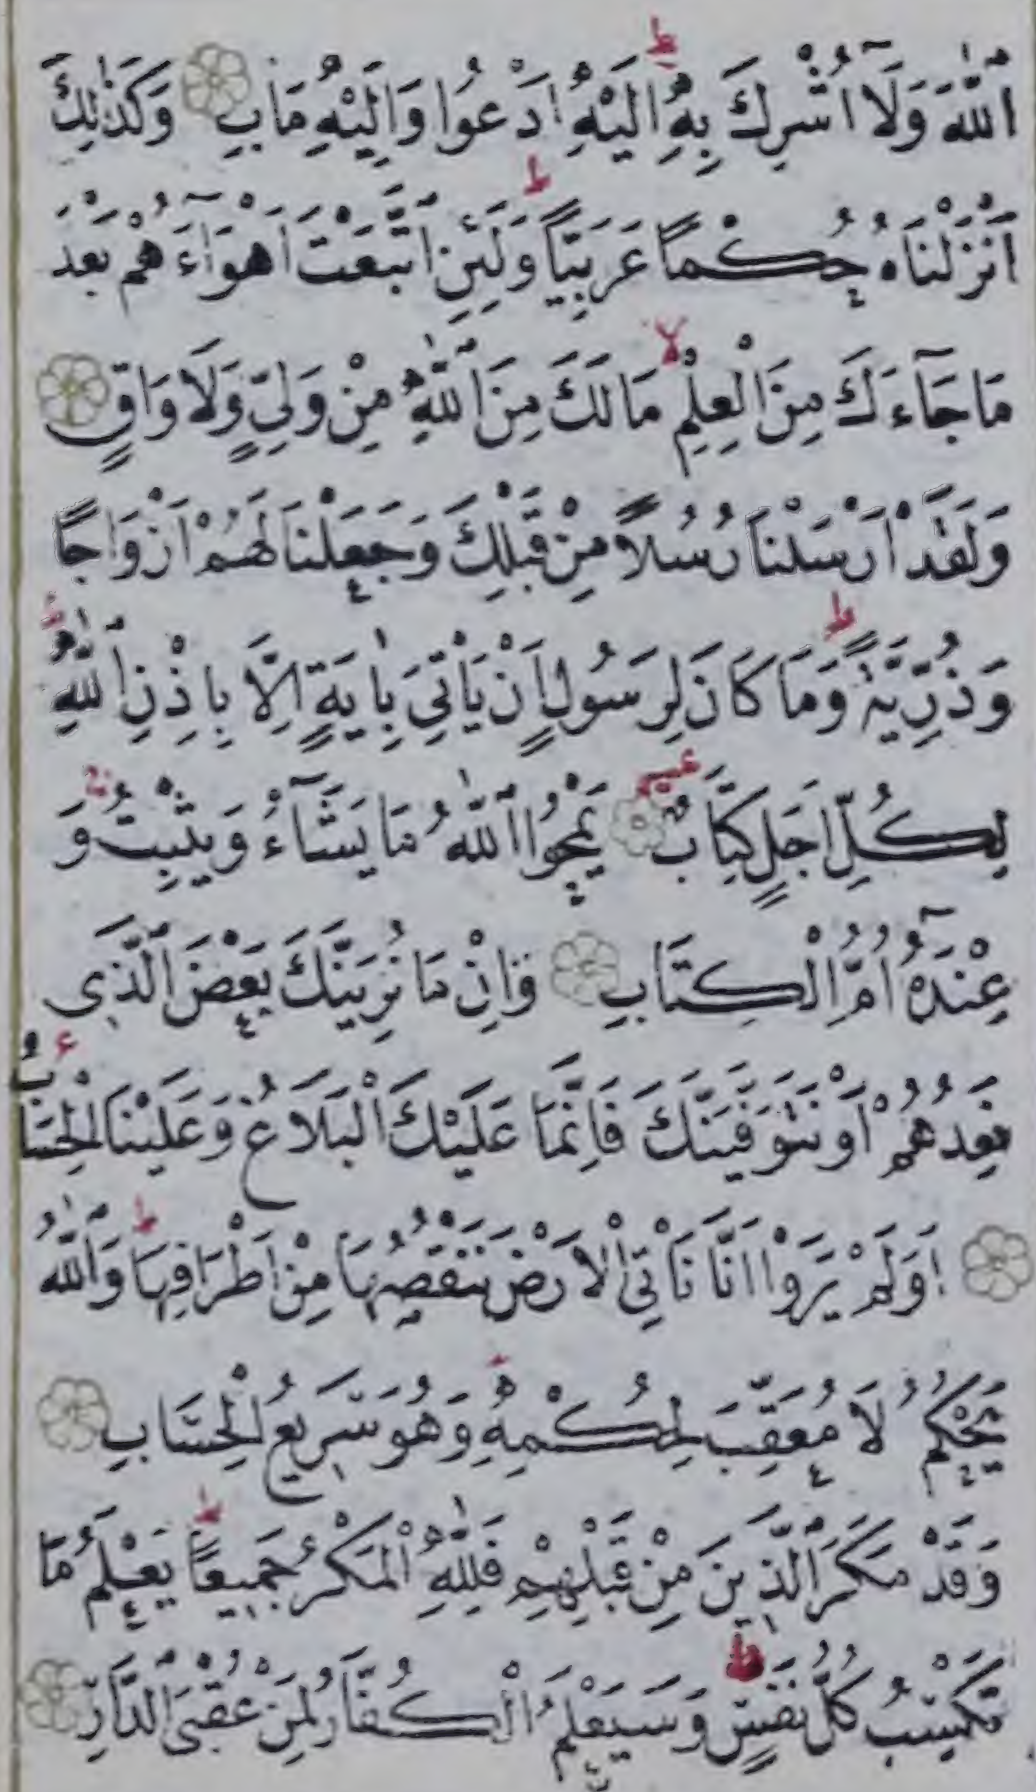 اللّٰهَ وَلَآ اُشْرِكَ بِهِ اِلَيْهِ اَدْعُوا وَاِلَيْهِ مَاٰبِ وَكَذٰلِكَ
اَنْزَلْنَاهُ حُكْمًا عَرَبِيًّا وَلَئِنِ اتَّبَعْتَ اَهْوَآءَهُمْ بَعْدَ
مَا جَآءَكَ مِنَ الْعِلْمِ مَا لَكَ مِنَ اللّٰهِ مِنْ وَلِيٍّ وَلَا وَاقٍ
وَلَقَدْ اَرْسَلْنَا رُسُلًا مِنْ قَبْلِكَ وَجَعَلْنَا لَهُمْ اَزْوَاجًا
وَذُرِّيَّةً وَمَا كَانَ لِرَسُولٍ اَنْ يَاْتِيَ بِاٰيَةٍ اِلَّا بِاِذْنِ اللّٰهِ
لِكُلِّ اَجَلٍ كِتَابٌ يَمْحُوا اللّٰهُ مَا يَشَآءُ وَيُثْبِتُ وَ
عِنْدَهُٓ اُمُّ الْكِتَابِ وَاِنْ مَا نُرِيَنَّكَ بَعْضَ الَّذِى
نَعِدُهُمْ اَوْ نَتَوَفَّيَنَّكَ فَاِنَّمَا عَلَيْكَ الْبَلَاغُ وَعَلَيْنَا الْحِسَابُ
اَوَلَمْ يَرَوْا اَنَّا نَاْتِى الْاَرْضَ نَنْقُصُهَا مِنْ اَطْرَافِهَا وَاللّٰهُ
يَحْكُمُ لَا مُعَقِّبَ لِحُكْمِهِ وَهُوَ سَرِيعُ الْحِسَابِ
وَقَدْ مَكَرَ الَّذِينَ مِنْ قَبْلِهِمْ فَلِلّٰهِ الْمَكْرُ جَمِيعًا يَعْلَمُ مَا
تَكْسِبُ كُلُّ نَفْسٍ وَسَيَعْلَمُ الْكُفَّارُ لِمَنْ عُقْبَى الدَّارِ